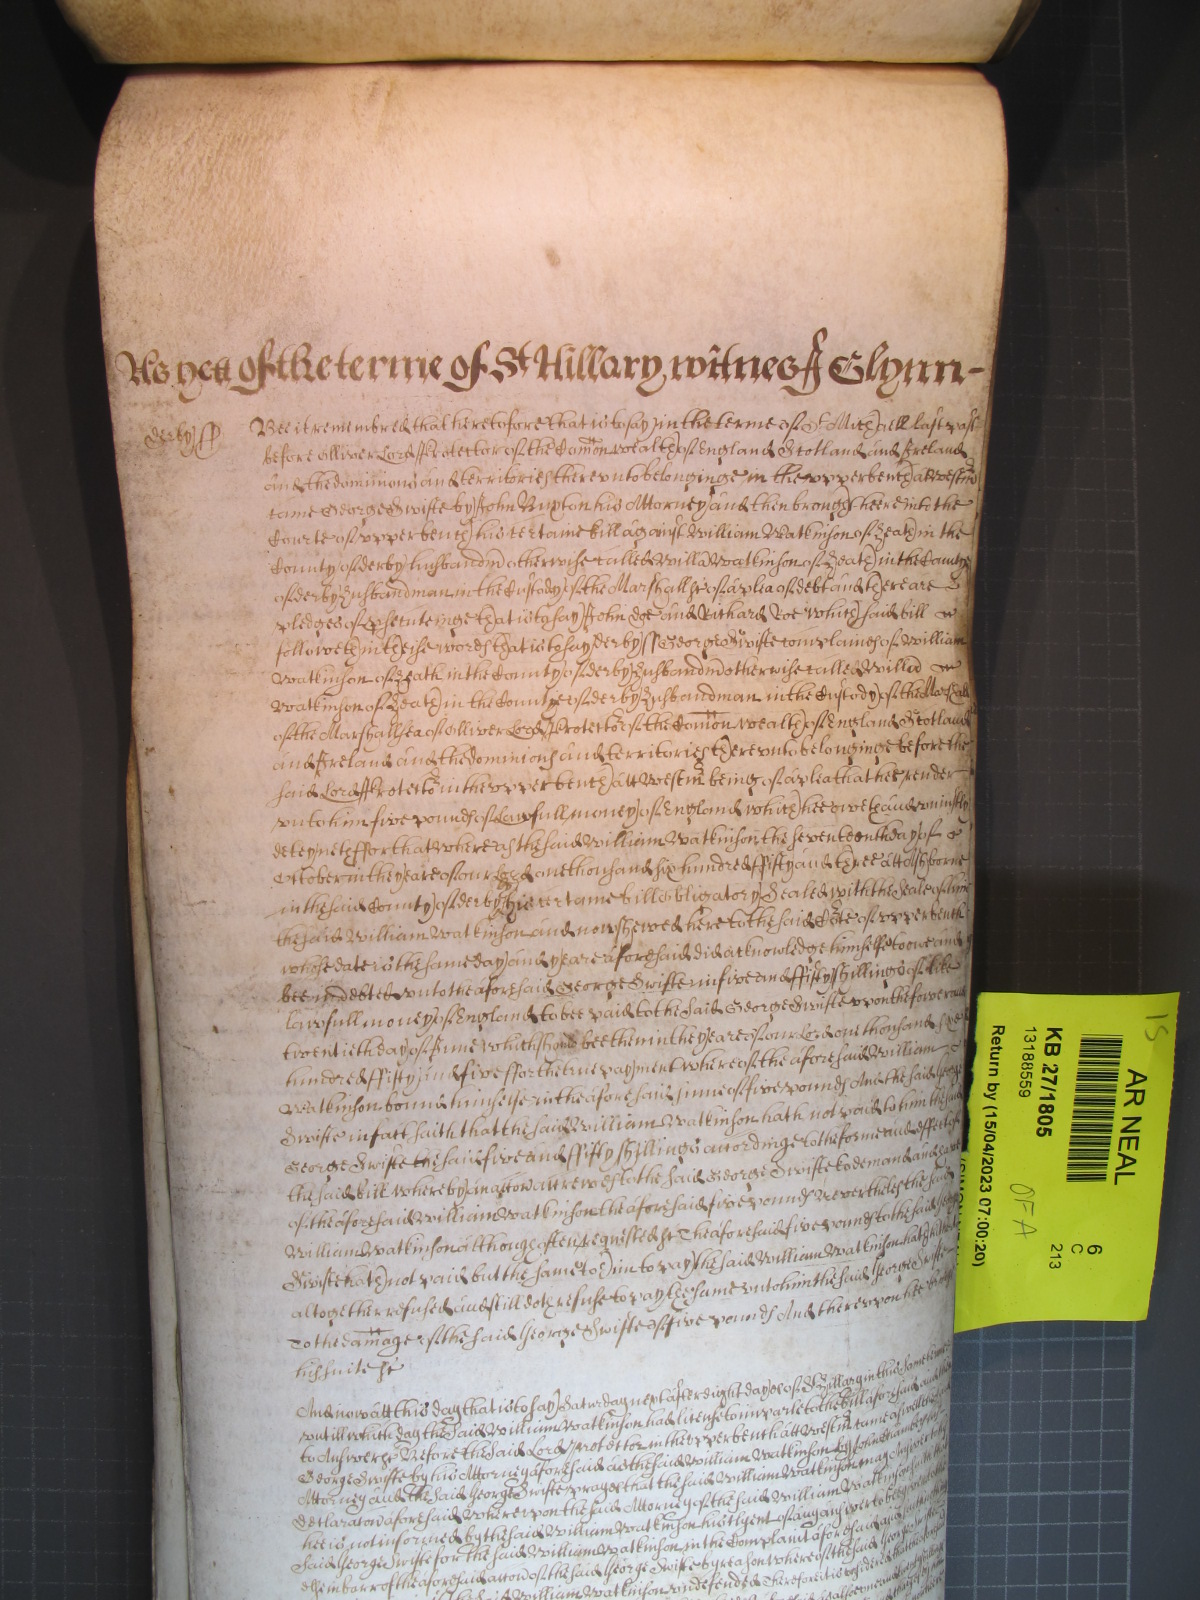 As yett of the terme of St Hillary witnes J Glynn
derby ss
Bee it remembred that heretofore that is to say in the terme of St Michaell last past
before Olliver Lord Protector of the Comon wealth of England Scotland and Ireland
and the dominions and territories thereunto belonginge in the upper bench at Westm
came George Swifte by John Buxton his Attorney and then brought here into the
Courte of upper bench his certaine bill against William Watkinson of Heath in the
County of derby husbandm otherwise called Willm Watkinson of Heath in the County
of derby husbandman in the Custody of the Marshall &c of a plea of debt and there are
pledges of prosecutinge that is to say John doe and Richard Roe which said bill
followeth in theise words that is to say derby ss George Swifte complaines of William
Watkinson of Heath in the County of derby husbandm otherwise called Willm
Watkinson of Heath in the County of derby husbandman in the Custody of the Marshall
of the Marshallsea of Olliver Lord Protector of the Comon wealth of England Scotland
and Ireland and the dominions and territories thereunto belonginge before the
said Lord Protector in the upper bench att Westm being of a plea that hee render
unto him five pounds of lawfull money of England which hee oweth and uniustly
deteyneth For that whereas the said William Watkinson the seventeenth day of
October in the yeare of our Lord one thousand six hundred fifty and three att
in the said County of derby by his certaine bill obligatory Sealed with the Seale of him
the said William Watkinson and now shewed here to the said Cote of upper bench
whose date is the same day and yeare aforesaid did acknowledge himselfe to owe and
bee indebted unto the aforesaid George Swifte in five and fifty shillings of like
lawfull money of England to bee paid to the said George Swifte upon the
twentieth day of June which should bee then in the yeare of our Lord one thousand six
hundred fifty and five for the true payment whereof the aforesaid William
Watkinson bound himselfe in the aforesaid summe of five pounds And the said George
Swifte in fact saith that the said William Watkinson hath not paid to him the said
George Swifte the said five and fifty shillings accordinge to the forme and effect of
the said bill whereby an accon accrewes to the said George Swifte to demand and have
of the aforesaid William Watkinson the aforesaid five pounds Neverthelesse the said
William Watkinson although often requested &c The aforesaid five pounds to the said George
Swifte hath not paid but the same to him to pay the said William Watkinson hath hitherto
altogether refused and still doth refuse to pay the same unto him the said George Swifte
To the damage of the said George Swifte of five pounds And thereupon hee brings
his suite &c
And now att this day that is to say Saturday next after eight dayes of St Hillary in this same terme
untill which day the said William Watkinson had licence to imparle to the bill aforesaid and then
to Answere &c Before the said Lord Protector in the upper bench att Westm came aswell the said
George Swifte by his Attorney aforesaid as the said William Watkinson by John
Attorney and the said George Swifte prayes that the said William Watkinson may Answer to his
declaracon aforesaid whereupon the said Attorney of the said William Watkinson saith that
hee is not informed by the said William Watkinson his Clyent of any answer to bee given to the
said George Swifte for the said William Watkinson in the Complaint aforesaid
of the aforesaid accon of the said George Swifte by reason whereof the said George Swifte
the said William Watkinson undefended Therefore it is considered that
AR NEAL
KB 27/1805
13188559
Return by (15/04/2023 07:00:20)
6
C
213
OFA
15